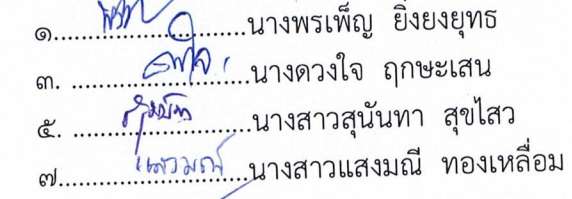 ๑..............................นางพรเพ็ญ ยิ่งยงยุทธ
๓. ...........................นางดวงใจ ฤกษะเสน
๕. ...........................นางสาวสุนันทา สุขไสว
๗............................นางสาวแสงมณี ทองเหลื่อม